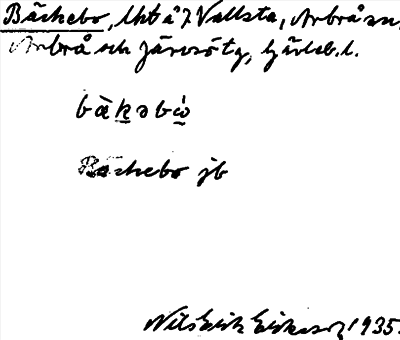 Bäckebo, lht å 7 Vallsta, Arbrå sn,
Arbrå och Järvsö tg, Gävleb. l.
bàkəbò
Bäckebo jb
Nils Erik Eriksson 1935.